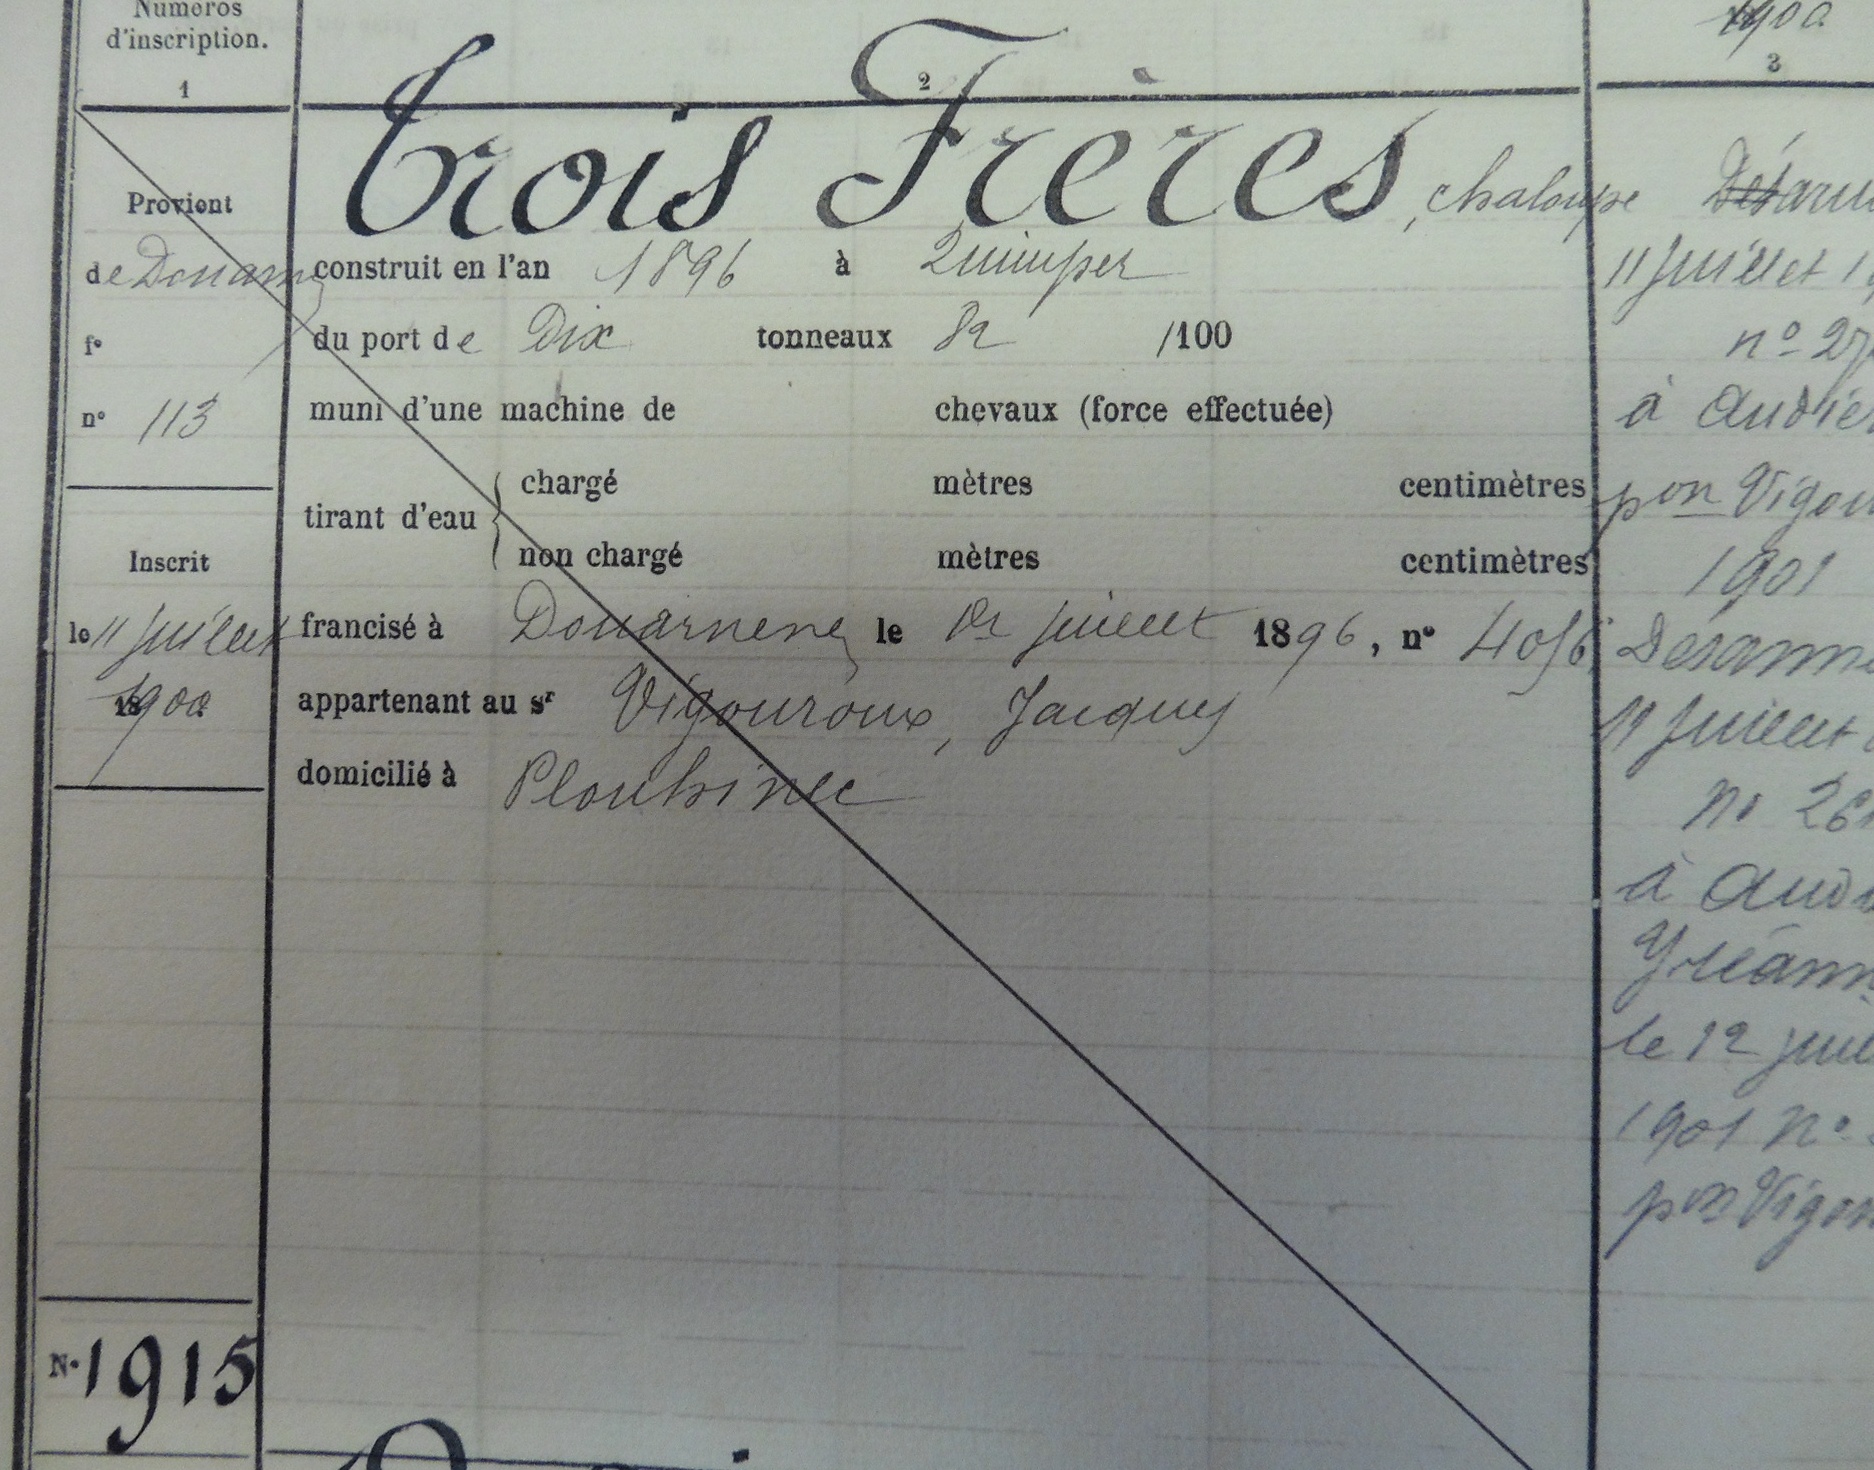 Numéros
d'inscription.
1
2
1900
3
Trois Frères, chaloupe
Provient
de Douarnz
f°
n° 113
Inscrit
le 11 juillet
1900
N° 1915
construit en l'an 1896 à Quimper
du port de Dix tonneaux 82 /100
muni d'une machine de chevaux (force effectuée)
tirant d'eau
chargé mètres centimètres
non chargé mètres centimètres
francisé à Douarnenez le 1er juillet 1896, n° 4056
appartenant au sr Vigouroux, Jacques
domicilié à Plouhinec
11 juillet 19
n° 27
à Audier
pon Vigou
1901
Désarme
11 juillet
n° 26
à Audi
Le 12 juil
1901 n°
pon Vigou